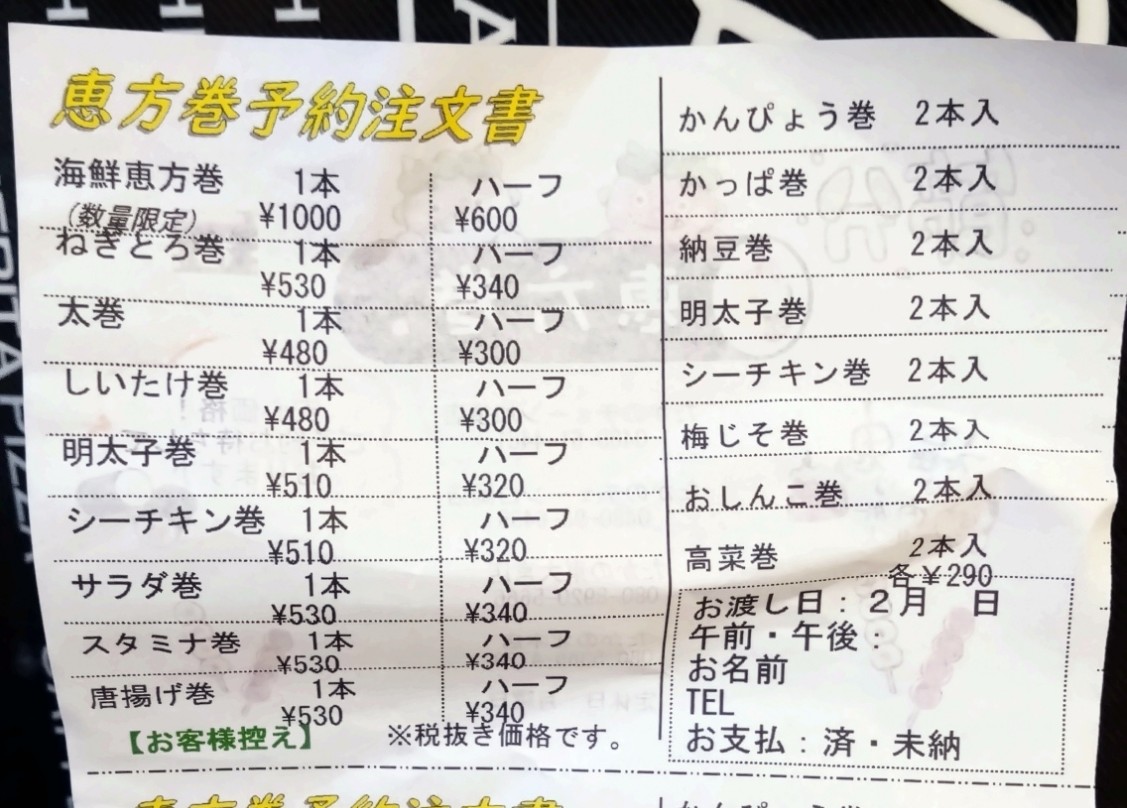 恵方巻予約注文書
海鮮恵方巻 1本 ハーフ
(数量限定) ¥1000 ¥600
ねぎとろ巻 1本 ハーフ
¥530 ¥340
太巻 1本 ハーフ
¥480 ¥300
しいたけ巻 1本 ハーフ
¥480 ¥300
明太子巻 1本 ハーフ
¥510 ¥320
シーチキン巻 1本 ハーフ
¥510 ¥320
サラダ巻 1本 ハーフ
¥530 ¥340
スタミナ巻 1本 ハーフ
¥530 ¥340
唐揚げ巻 1本 ハーフ
¥530 ¥340
【お客様控え】 ※税抜き価格です。
かんぴょう巻 2本入
かっぱ巻 2本入
納豆巻 2本入
明太子巻 2本入
シーチキン巻 2本入
梅じそ巻 2本入
おしんこ巻 2本入
高菜巻 2本入
各¥290
お渡し日:2月 日
午前・午後:
お名前
TEL
お支払:済・未納
恵方巻予約注文書
かんぴょう巻